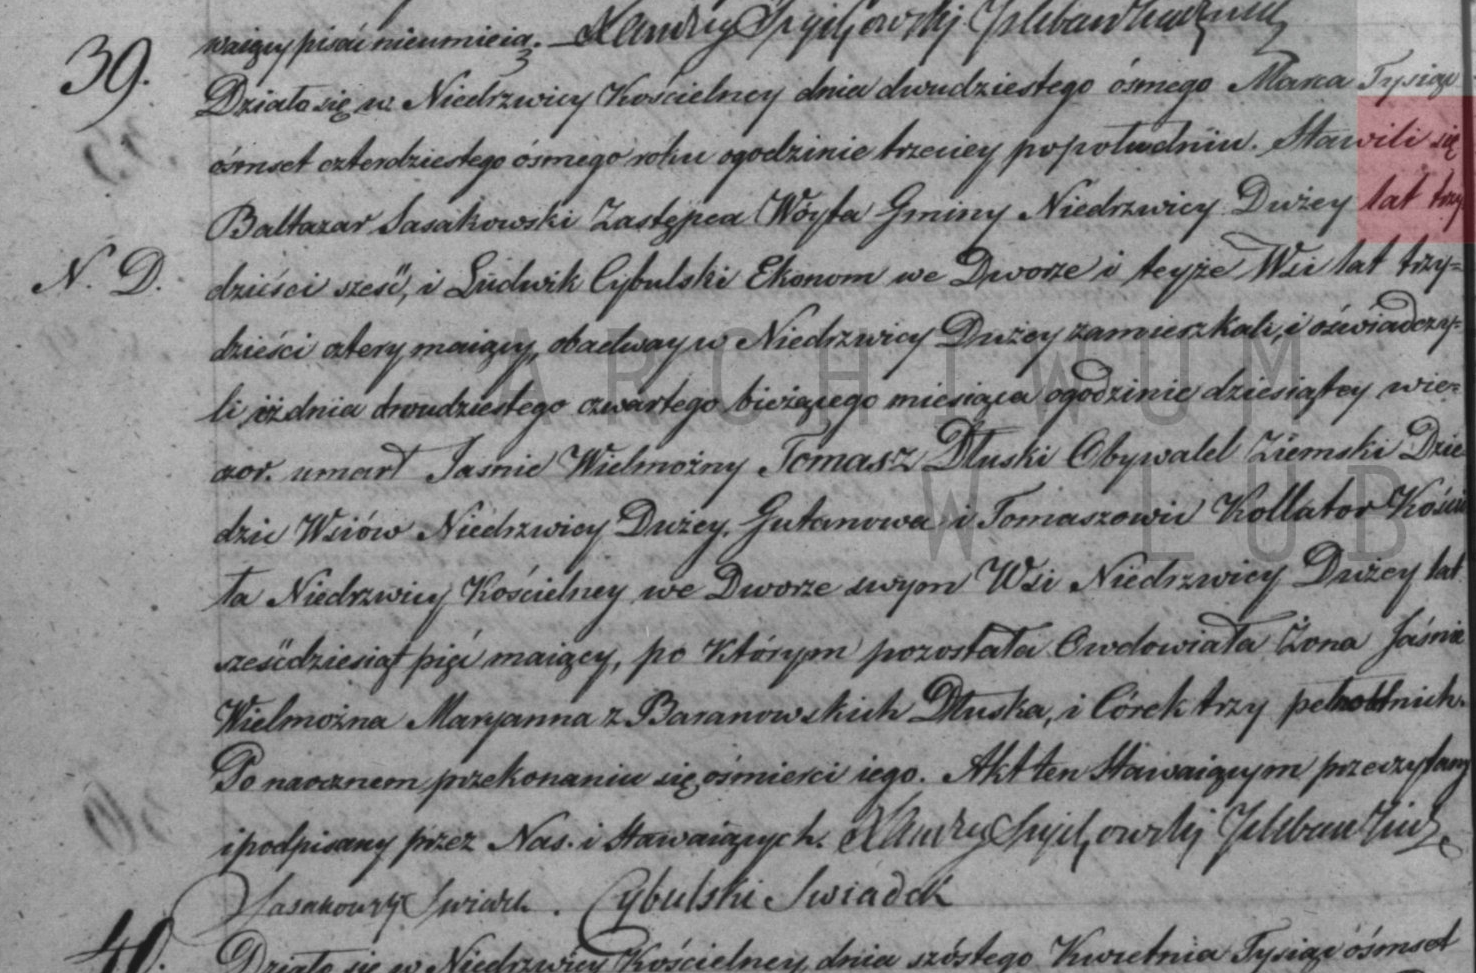 waiący pisać nieumieią. X Andrzey
39. Działo się w Niedrzwicy Kościelney dnia dwudziestego ósmego Marca Tysiąc
ośmset czterdziestego ósmego roku ogodzinie trzeciey popołudniu. Stawili się
Baltazar Sasakowski Zastępca Wóyta Gminy Niedrzwicy Dużey lat trzy
N. D. dzieści sześć, i Ludwik Cybulski Ekonom we Dworze i teyże Wsi lat trzy=
dzieści cztery maiący, obadway w Niedrzwicy Dużey zamieszkali, i oświadczy=
li iż dnia dwudziestego czwartego bieżącego miesiąca ogodzinie dziesiątey wie=
czor. umarł Jaśnie Wielmożny Tomasz Dłuski Obywatel Ziemski Dzie
dzic Wsiów Niedrzwicy Dużey, Gutanowa i Tomaszowic Kollator Kościo
ła Niedrzwicy Kościelney we Dworze swym Wsi Niedrzwicy Dużey lat
sześćdziesiąt pięć maiący, po którym pozostała Owdowiała Żona Jaśnie
Wielmożna Maryanna z Baranowskich Dłuska, i Córek trzy pełnoletnich.
Po naocznem przekonaniu się ośmierci iego. Akt ten Stawaiącym przeczytany
i podpisany przez Nas. i stawaiących. X Andrzey
Sasakowski Swiadek. Cybulski Swiadek
40. Działo się w Niedrzwicy Kościelney dnia szóstego Kwietnia Tysiąc ośmset
ARCHIWUM
W LUB